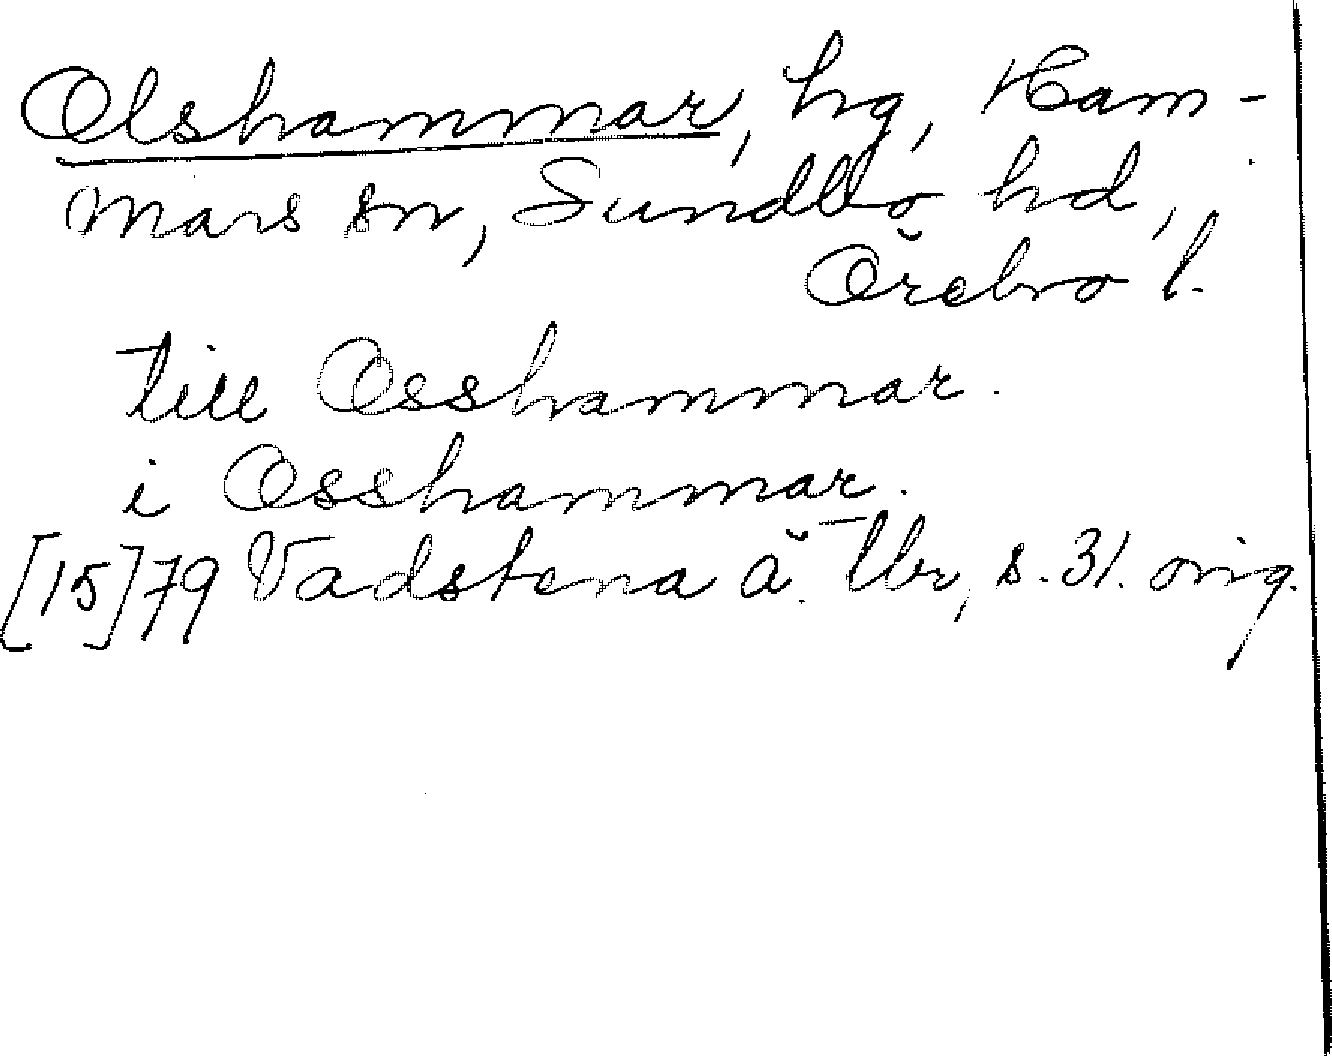 Olshammar, hg, Ham-
mars sn, Sundbo hd,
Örebro l.
till Osshammar.
i Osshammar.
[15]79 Vadstena ä. Tbr, s. 31. orig.